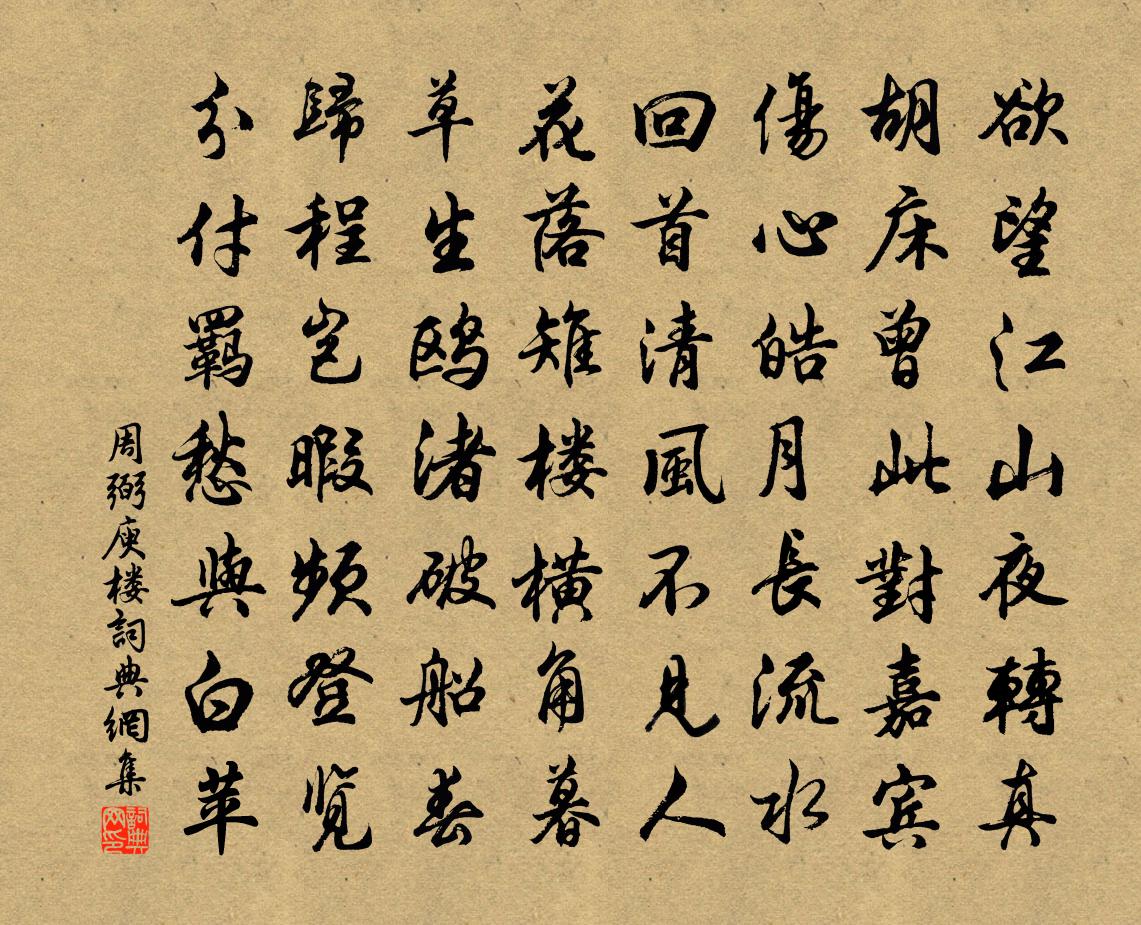 欲望江山夜轉真
胡床曾此對嘉宾
傷心皓月長流水
回首清風不見人
花落雉楼横角暮
草生鸥渚破船春
歸程岂暇頻登覽
分付羁愁與白苹
周弼庾楼詞典網集
詞典网印